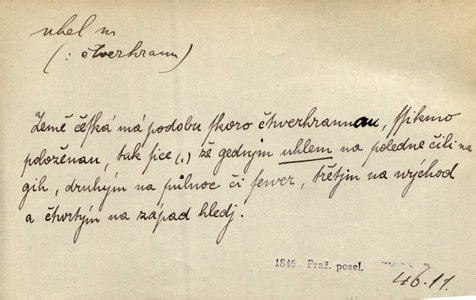 uhel m
(: čtverhrann)
Země čeſká má podobu ſkoro čtwerhrannau, ſſikmo
položenau, tak ſice (,) že gedným uhlem na poledne čili na
gih, druhým na půlnoc či ſewer, třetjm na wýchod
a čtwrtým na západ hledj.
1846 Praž. posel.
46.11.